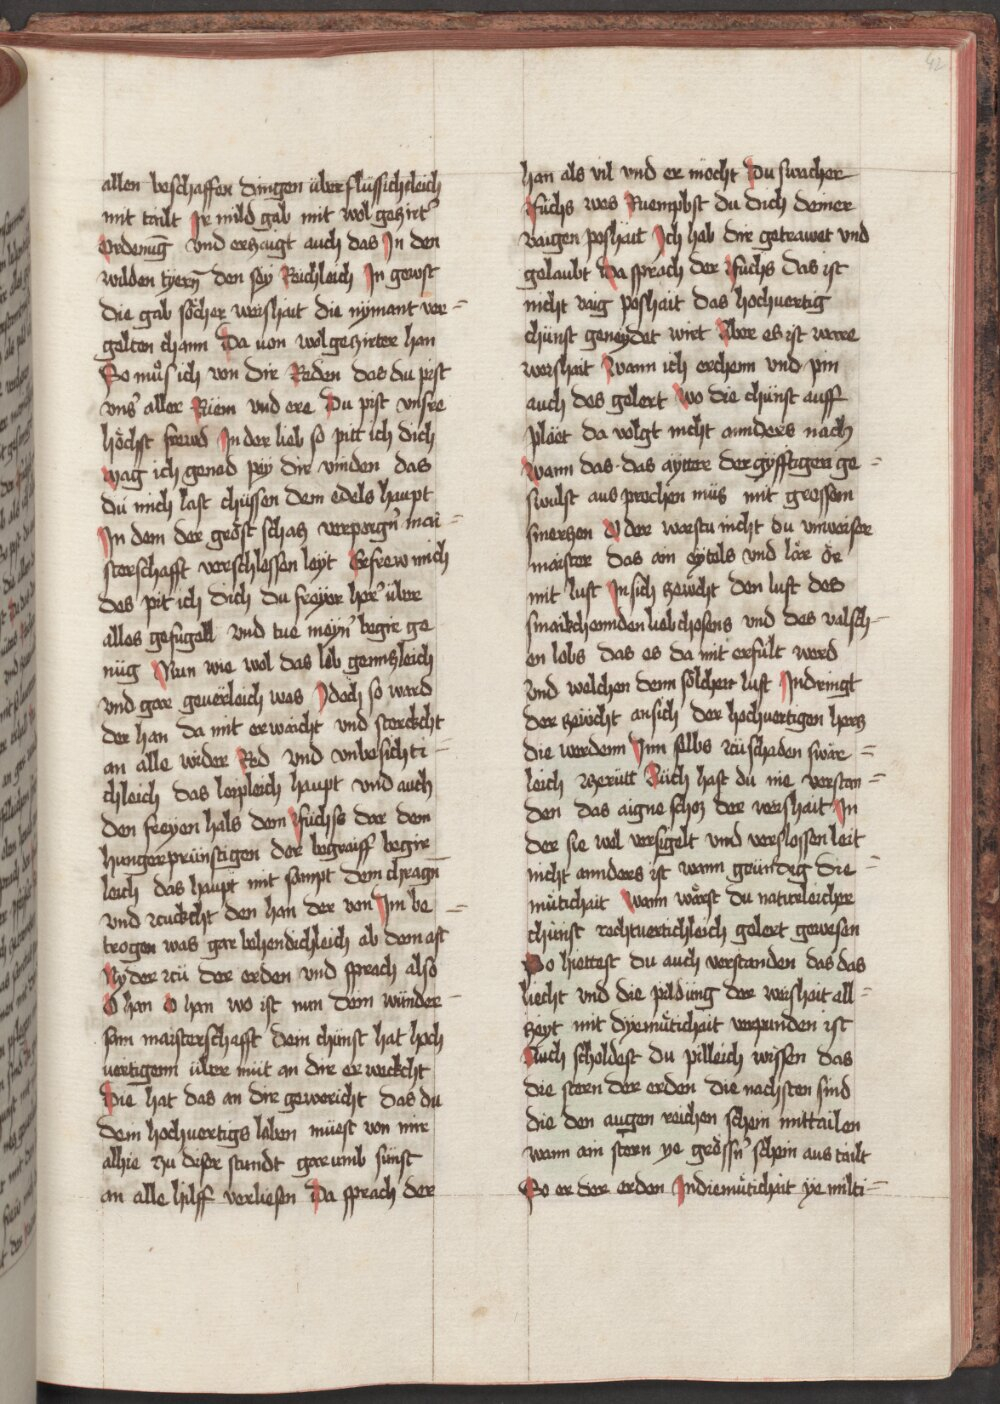 42
allen beschaffen dingen überflüssichleich
mit tailt Ir mild gab mit wolgezirt̉
Ordenuḡ vnd erzaigt auch das In den
wilden tyern̄ den sey Reichleich In gewst
die gab sölcher weishait die nymant ver-
gelten chann Da uon wolgezirter han
So můs ich von dir Reden das du pist
vns̉ aller Riem vnd ere Du pist vnsre
höchst frewd In der lieb so pitt ich dich
mag ich genad pey dir vinden das
du mich last chüssen dem edels haupt
In dem der gröst schatz verporgn̄ mai-
sterschafft verschlossen leyt Erfrew mich
des pit ich dich du freyer her̉ über
alles gefugell vnd tue meyn̄ begir ge
nüg Nun wie wol das lob gennzleich
vnd gar geuerleich was Idoch so ward
der han da mit erwaicht vnd sterckcht
an alle wider Red vnd vnbesichti-
chleich das leipleich haupt vnd auch
den freyen hals dem fuchse dar dem
hungerprünstigen der begraiff begir
leich das haupt mit sampt dem chragn̄
vnd zuckcht den han der von Im be-
trogen was gar behendichleich ab dem ast
Nyder zü der erden vnd sprach also
O han O han wo ist nun dein wünder-
sam maisterschafft dein chünst hat hoch
uertigenn über müt an dir erweckcht
Die hat das an dir geworicht das du
dem hochuertigs leben müest von mir
alhie zu diser stundt gar umb sunst
an alle hilff verliesen Da sprach der
han als vil vnd er möcht Du swacher
Fuchs wes Ruempbst du dich deiner
vaigen poshait Ich hab dir getrawet vnd
gelaubt Da sprach der fuchs das ist
nicht vaig poshait das hochuertig
chünst geneydet wirt Aber es ist ware
weishait Wann ich erchenn vnd pin
auch des gelert Wo die chünst auff
pläet da volgt nicht annders nach
Wann das das aytter der gyfftigen ge-
swulst aus prochen müs mit grossem
smerzen O der waistu nicht du unweiser
maister das ain eytels vnd lär ör
mit lust In sich zeücht den lust des
smaikchennden liebchosens vnd des valsch-
en lobs das es da mit erfült werd
vnd welchen denn sölcher lust Indringt
der zewcht an sich der hochuertigen herz
die werdenn Inn selbs zü schaden swär-
leich zerütt Auch hast du nie verstan-
den das aigne schoz der weishait In
der sie wol versigelt vnd verslossen leit
nicht annders ist wann gründig die-
mütichait Wann wärst du naturleicher
chünst rechtuertichleich gelert gewesen
So hiettest du auch verstanden das das
liecht vnd die pildüng der weishait all-
zeyt mit dyemütichait verpunden ist
Auch scholdest du pilleich wissen das
die stern der erden die nachsten sind
die den augen reichen schein mittailen
wann ain stern ye grössn̉ schein aus tailt
So er der erden In diemütichait ye milti-